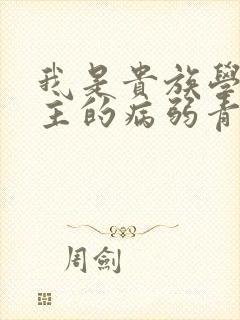 我是貴族學
主的病弱青
周劍